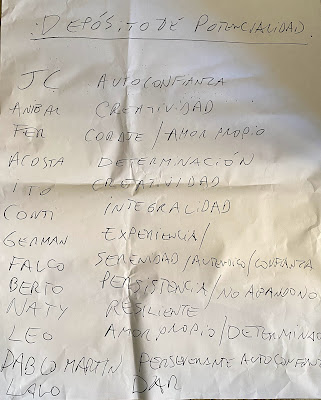 DEPÓSITO DE POTENCIALIDAD
JC AUTOCONFIANZA
ANIBAL CREATIVIDAD
FER CORATE / AMOR PROPIO
ACOSTA DETERMINACIÓN
ITO CREATIVIDAD
CONTI INTEGRALIDAD
GERMAN EXPERIENCIA/
FALCO SERENIDAD/AUTENTICO/CONFIANZA
BERTO PERSISTENCIA/NO ABANDONO
NATY RESILIENTE
LEO AMOR PROPIO/DETERMINAC
PABLO MARTIN PERSEVERANTE AUTOCONFIAN
LALO DAR